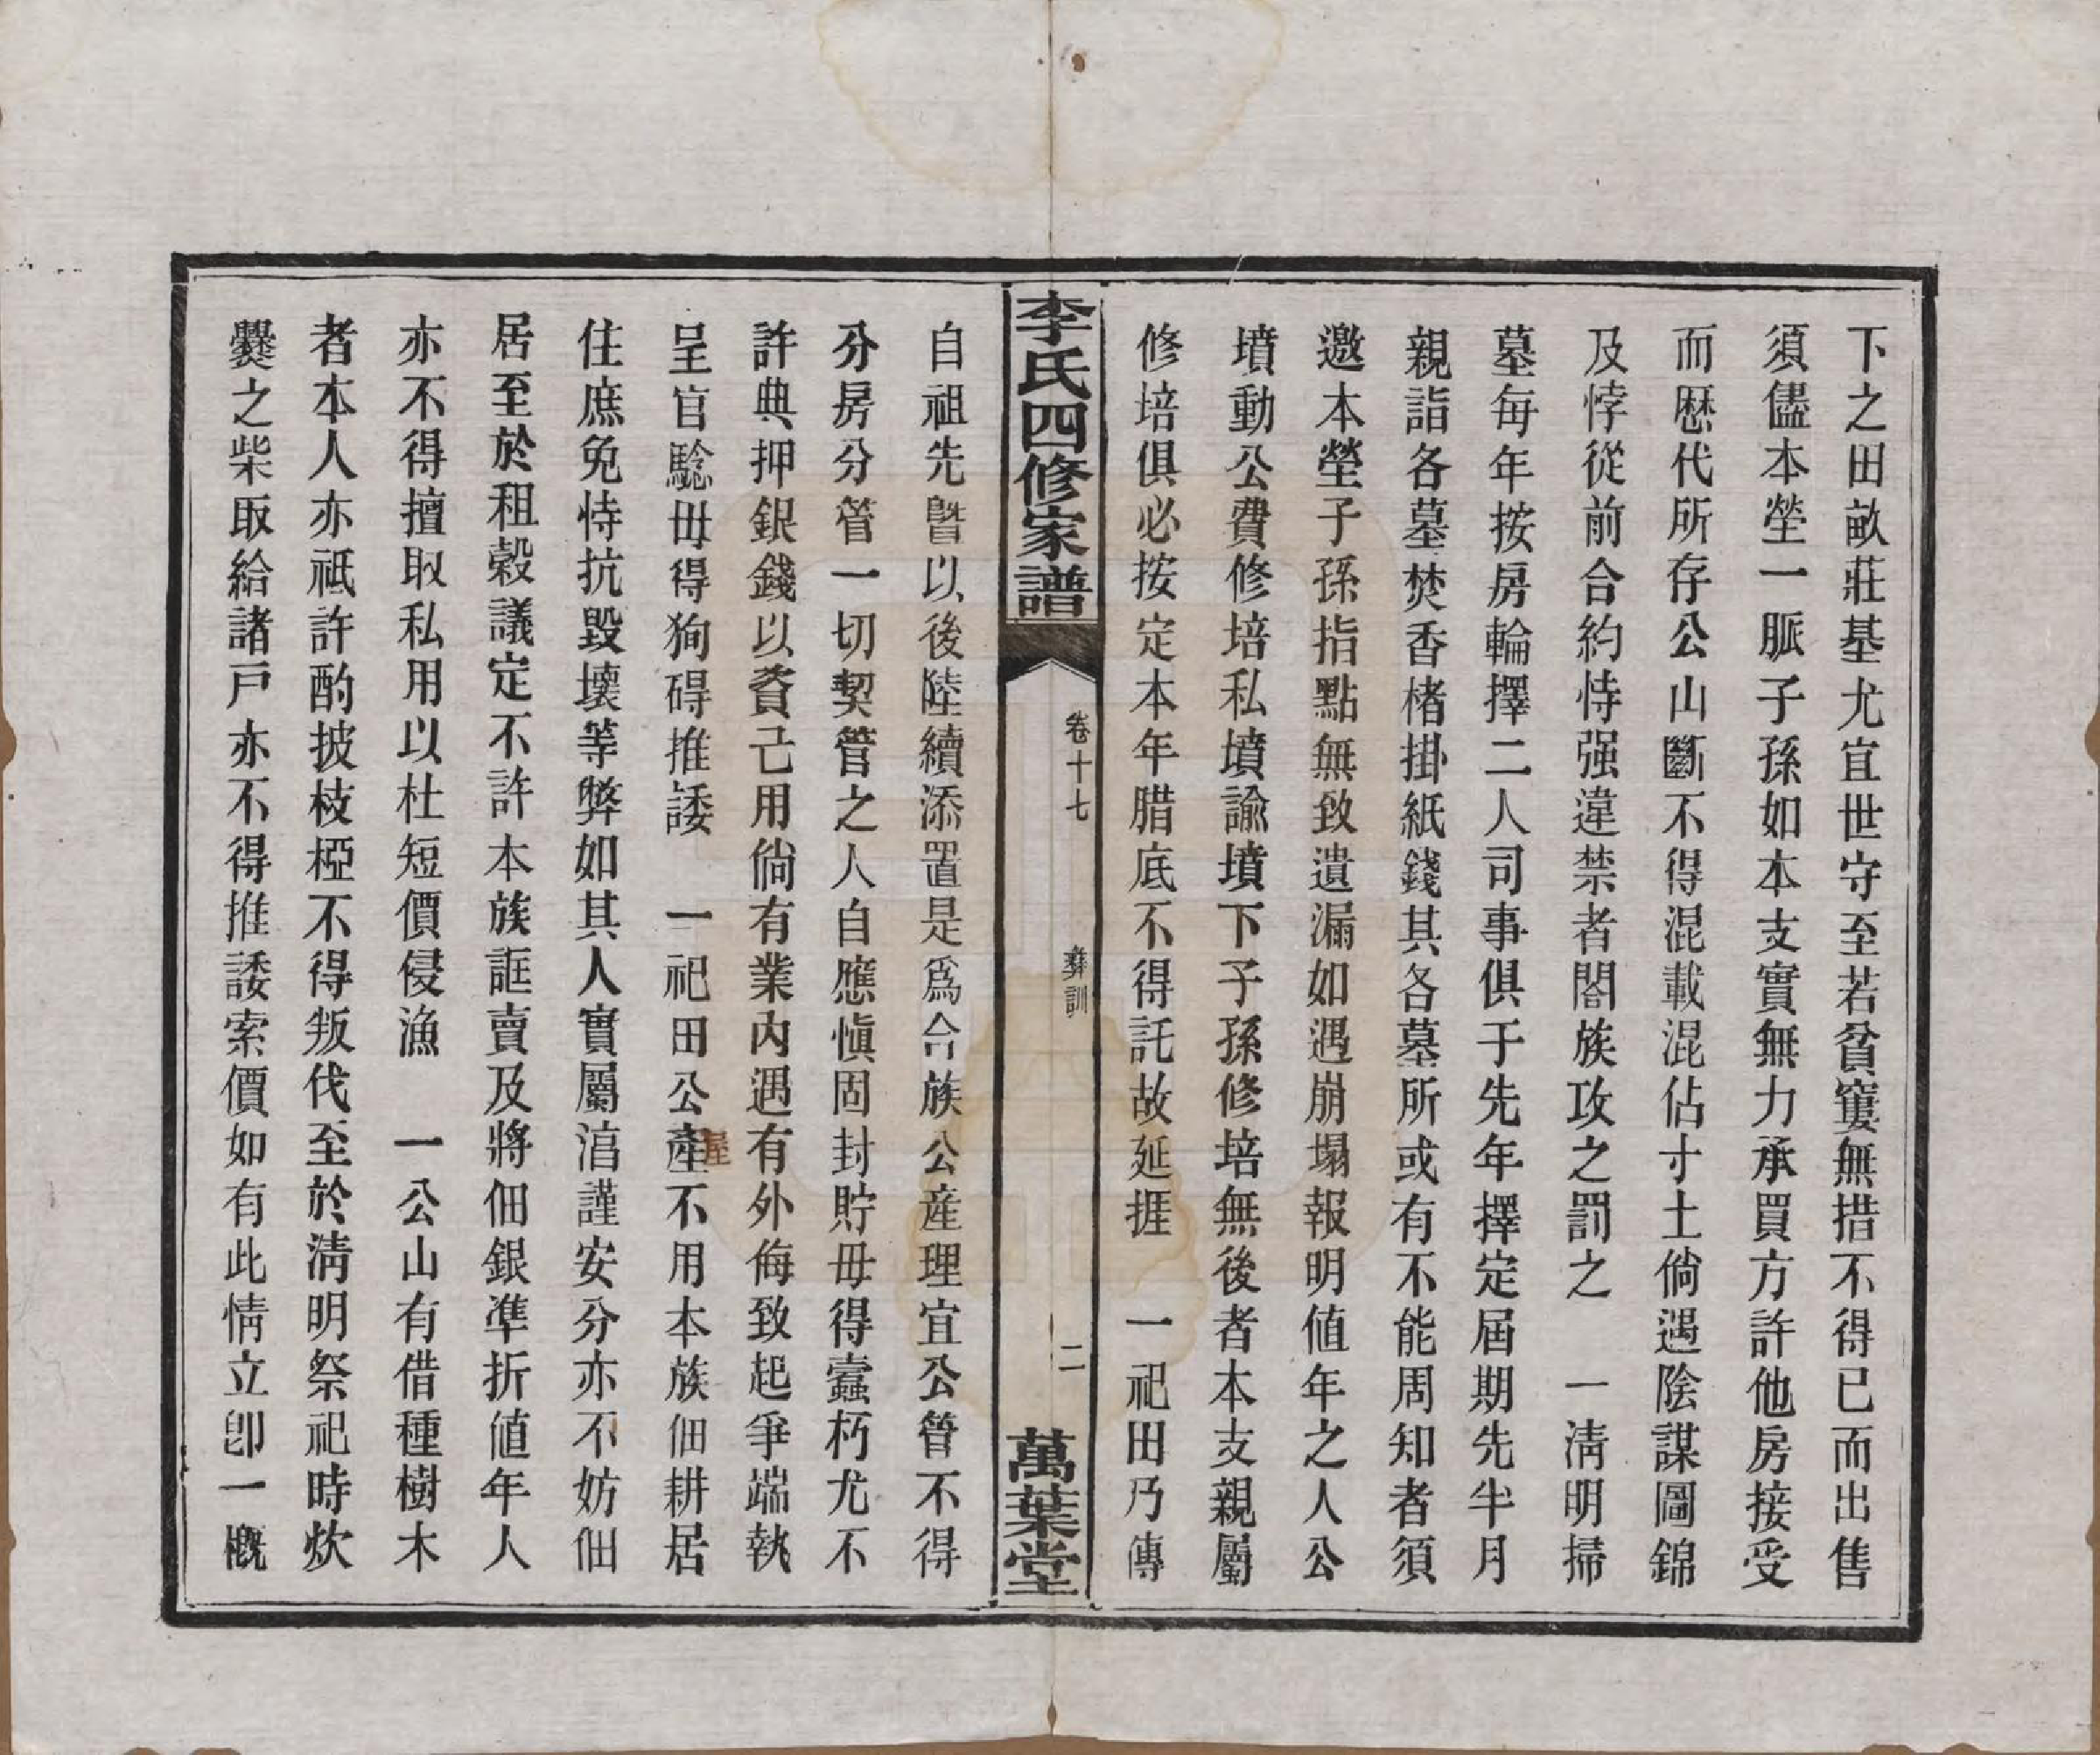 下之田畝莊基尤宜世守至若貧窶無措不得已而出售
須儘本塋一脈子孫如本支實無力承買方許他房接受
而歷代所存公山斷不得混載混佔寸土倘遇陰謀圖錦
及悖從前合約恃强違禁者闔族攻之罰之　一淸明掃
墓每年按房輪擇二人司事俱于先年擇定屆期先半月
親詣各墓焚香楮掛紙錢其各墓所或有不能周知者須
邀本塋子孫指點無致遺漏如遇崩塌報明値年之人公
墳動公費修培私墳諭墳下子孫修培無後者本支親屬
修培俱必按定本年腊底不得託故延捱　一祀田乃傳
李氏四修家譜
卷十七
彝訓
二
萬葉堂
自祖先曁以後陸續添置是爲合族公産理宜公管不得
分房分管一切契管之人自應愼固封貯毋得蠹朽尤不
許典押銀錢以資己用倘有業內遇有外侮致起爭端執
呈官騐毋得狥碍推諉　一祀田公產不用本族佃耕居
屋
住庶免恃抗毀壞等弊如其人實屬湻謹安分亦不妨佃
居至於租穀議定不許本族誆賣及將佃銀準折値年人
亦不得擅取私用以杜短價侵漁　一公山有借種樹木
者本人亦祗許酌披枝椏不得叛伐至於淸明祭祀時炊
爨之柴取給諸戸亦不得推諉索價如有此情立卽一概